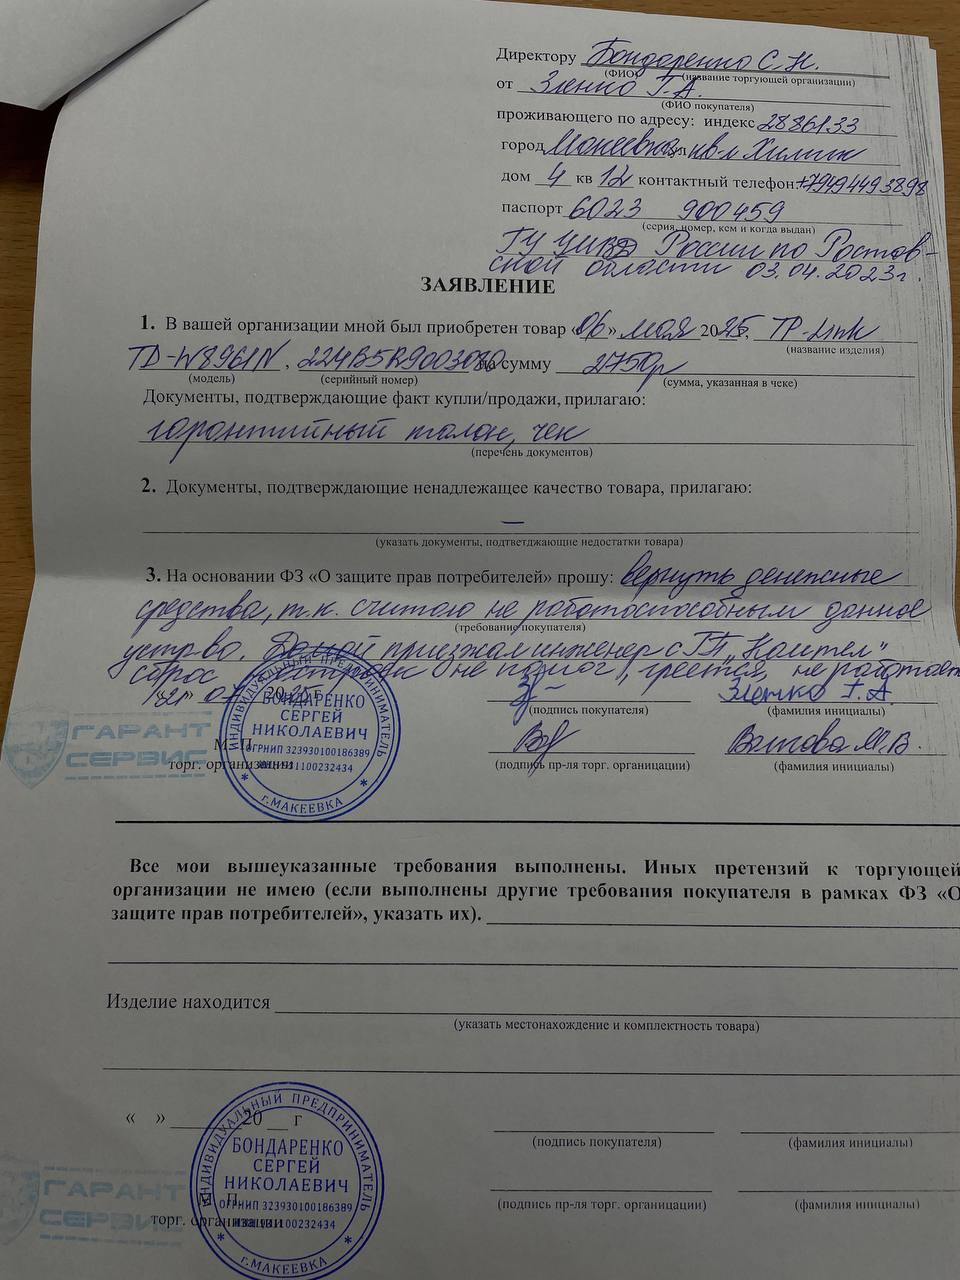 Директору Бондаренко С.Н.
(ФИО) (название торгующей организации)
от Зленко Г.А.
(ФИО покупателя)
проживающего по адресу: индекс 2886133
город Макеевка кв-л Химик
дом 4 кв 12 контактный телефон:+79494493898
паспорт 6023 900459
(серия, номер, кем и когда выдан)
ГУ УМВД России по Ростов-
ской области 03.04.2023г.
ЗАЯВЛЕНИЕ
1. В вашей организации мной был приобретен товар «06» мая 2025, TP-Link
(название изделия)
TD-W8961N, 224B5R9003080 на сумму 2750р
(модель) (серийный номер) (сумма, указанная в чеке)
Документы, подтверждающие факт купли/продажи, прилагаю:
гарантийный талон, чек
(перечень документов)
2. Документы, подтверждающие ненадлежащее качество товара, прилагаю:
—
(указать документы, подтветджающие недостатки товара)
3. На основании ФЗ «О защите прав потребителей» прошу: вернуть денежные
средства, т.к. считаю не работоспособным данное
(требование покупателя)
устр-во. Домой приезжал инженер с
сброс настроек не помог, греется, не работает
20 г.
(подпись покупателя) Зленко Г.А.
(фамилия инициалы)
М. П.
торг. организации
(подпись пр-ля торг. органицации) Волкова М.В.
(фамилия инициалы)
ГАРАНТ
СЕРВИС
ИНДИВИДУАЛЬНЫЙ ПРЕДПРИНИМАТЕЛЬ
БОНДАРЕНКО
СЕРГЕЙ
НИКОЛАЕВИЧ
ОГРНИП 323930100186389
г.МАКЕЕВКА
Все мои вышеуказанные требования выполнены. Иных претензий к торгующей
организации не имею (если выполнены другие требования покупателя в рамках ФЗ «О
защите прав потребителей», указать их).
Изделие находится
(указать местонахождение и комплектность товара)
« » 20 г
(подпись покупателя) (фамилия инициалы)
М. П.
торг. организации
(подпись пр-ля торг. органицации) (фамилия инициалы)
ГАРАНТ
СЕРВИС
ИНДИВИДУАЛЬНЫЙ ПРЕДПРИНИМАТЕЛЬ
БОНДАРЕНКО
СЕРГЕЙ
НИКОЛАЕВИЧ
ОГРНИП 323930100186389
г.МАКЕЕВКА